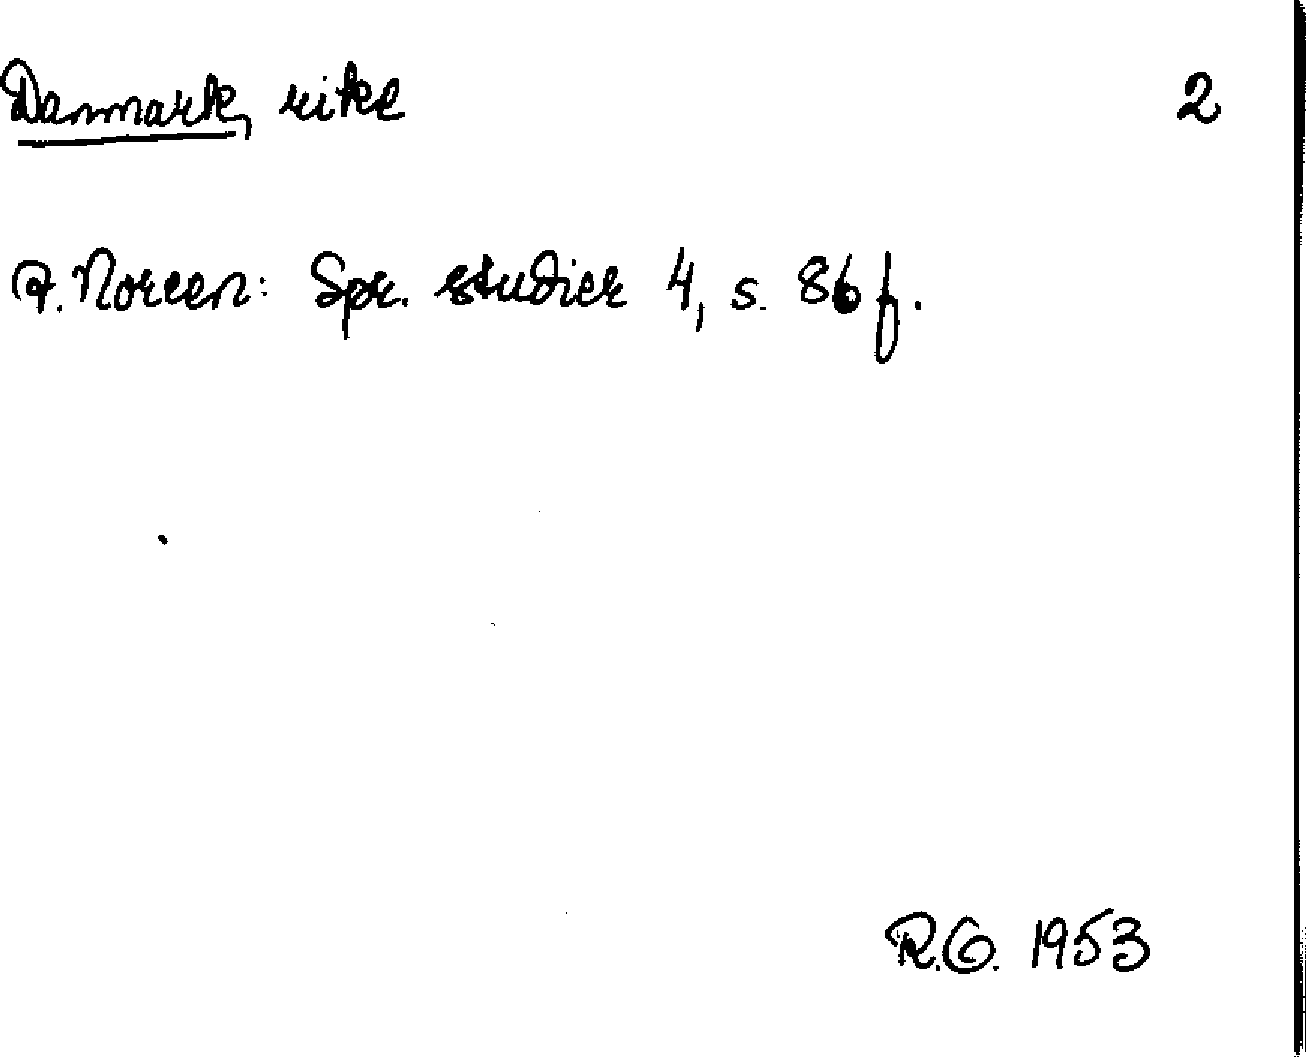 Danmark, rike 2
A. Noreen: Spr. studier 4, s. 86 f.
R.G. 1953